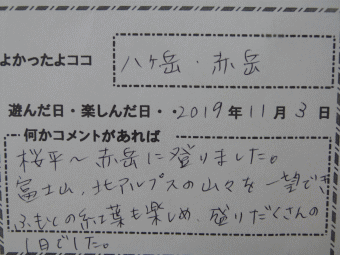 よかったよココ 八ヶ岳・赤岳
遊んだ日・楽しんだ日・・2019年11月3日
何かコメントがあれば
桜平～赤岳に登りました。
富士山、北アルプスの山々を一望でき
ふもとの紅葉も楽しめ、盛りだくさんの
1日でした。